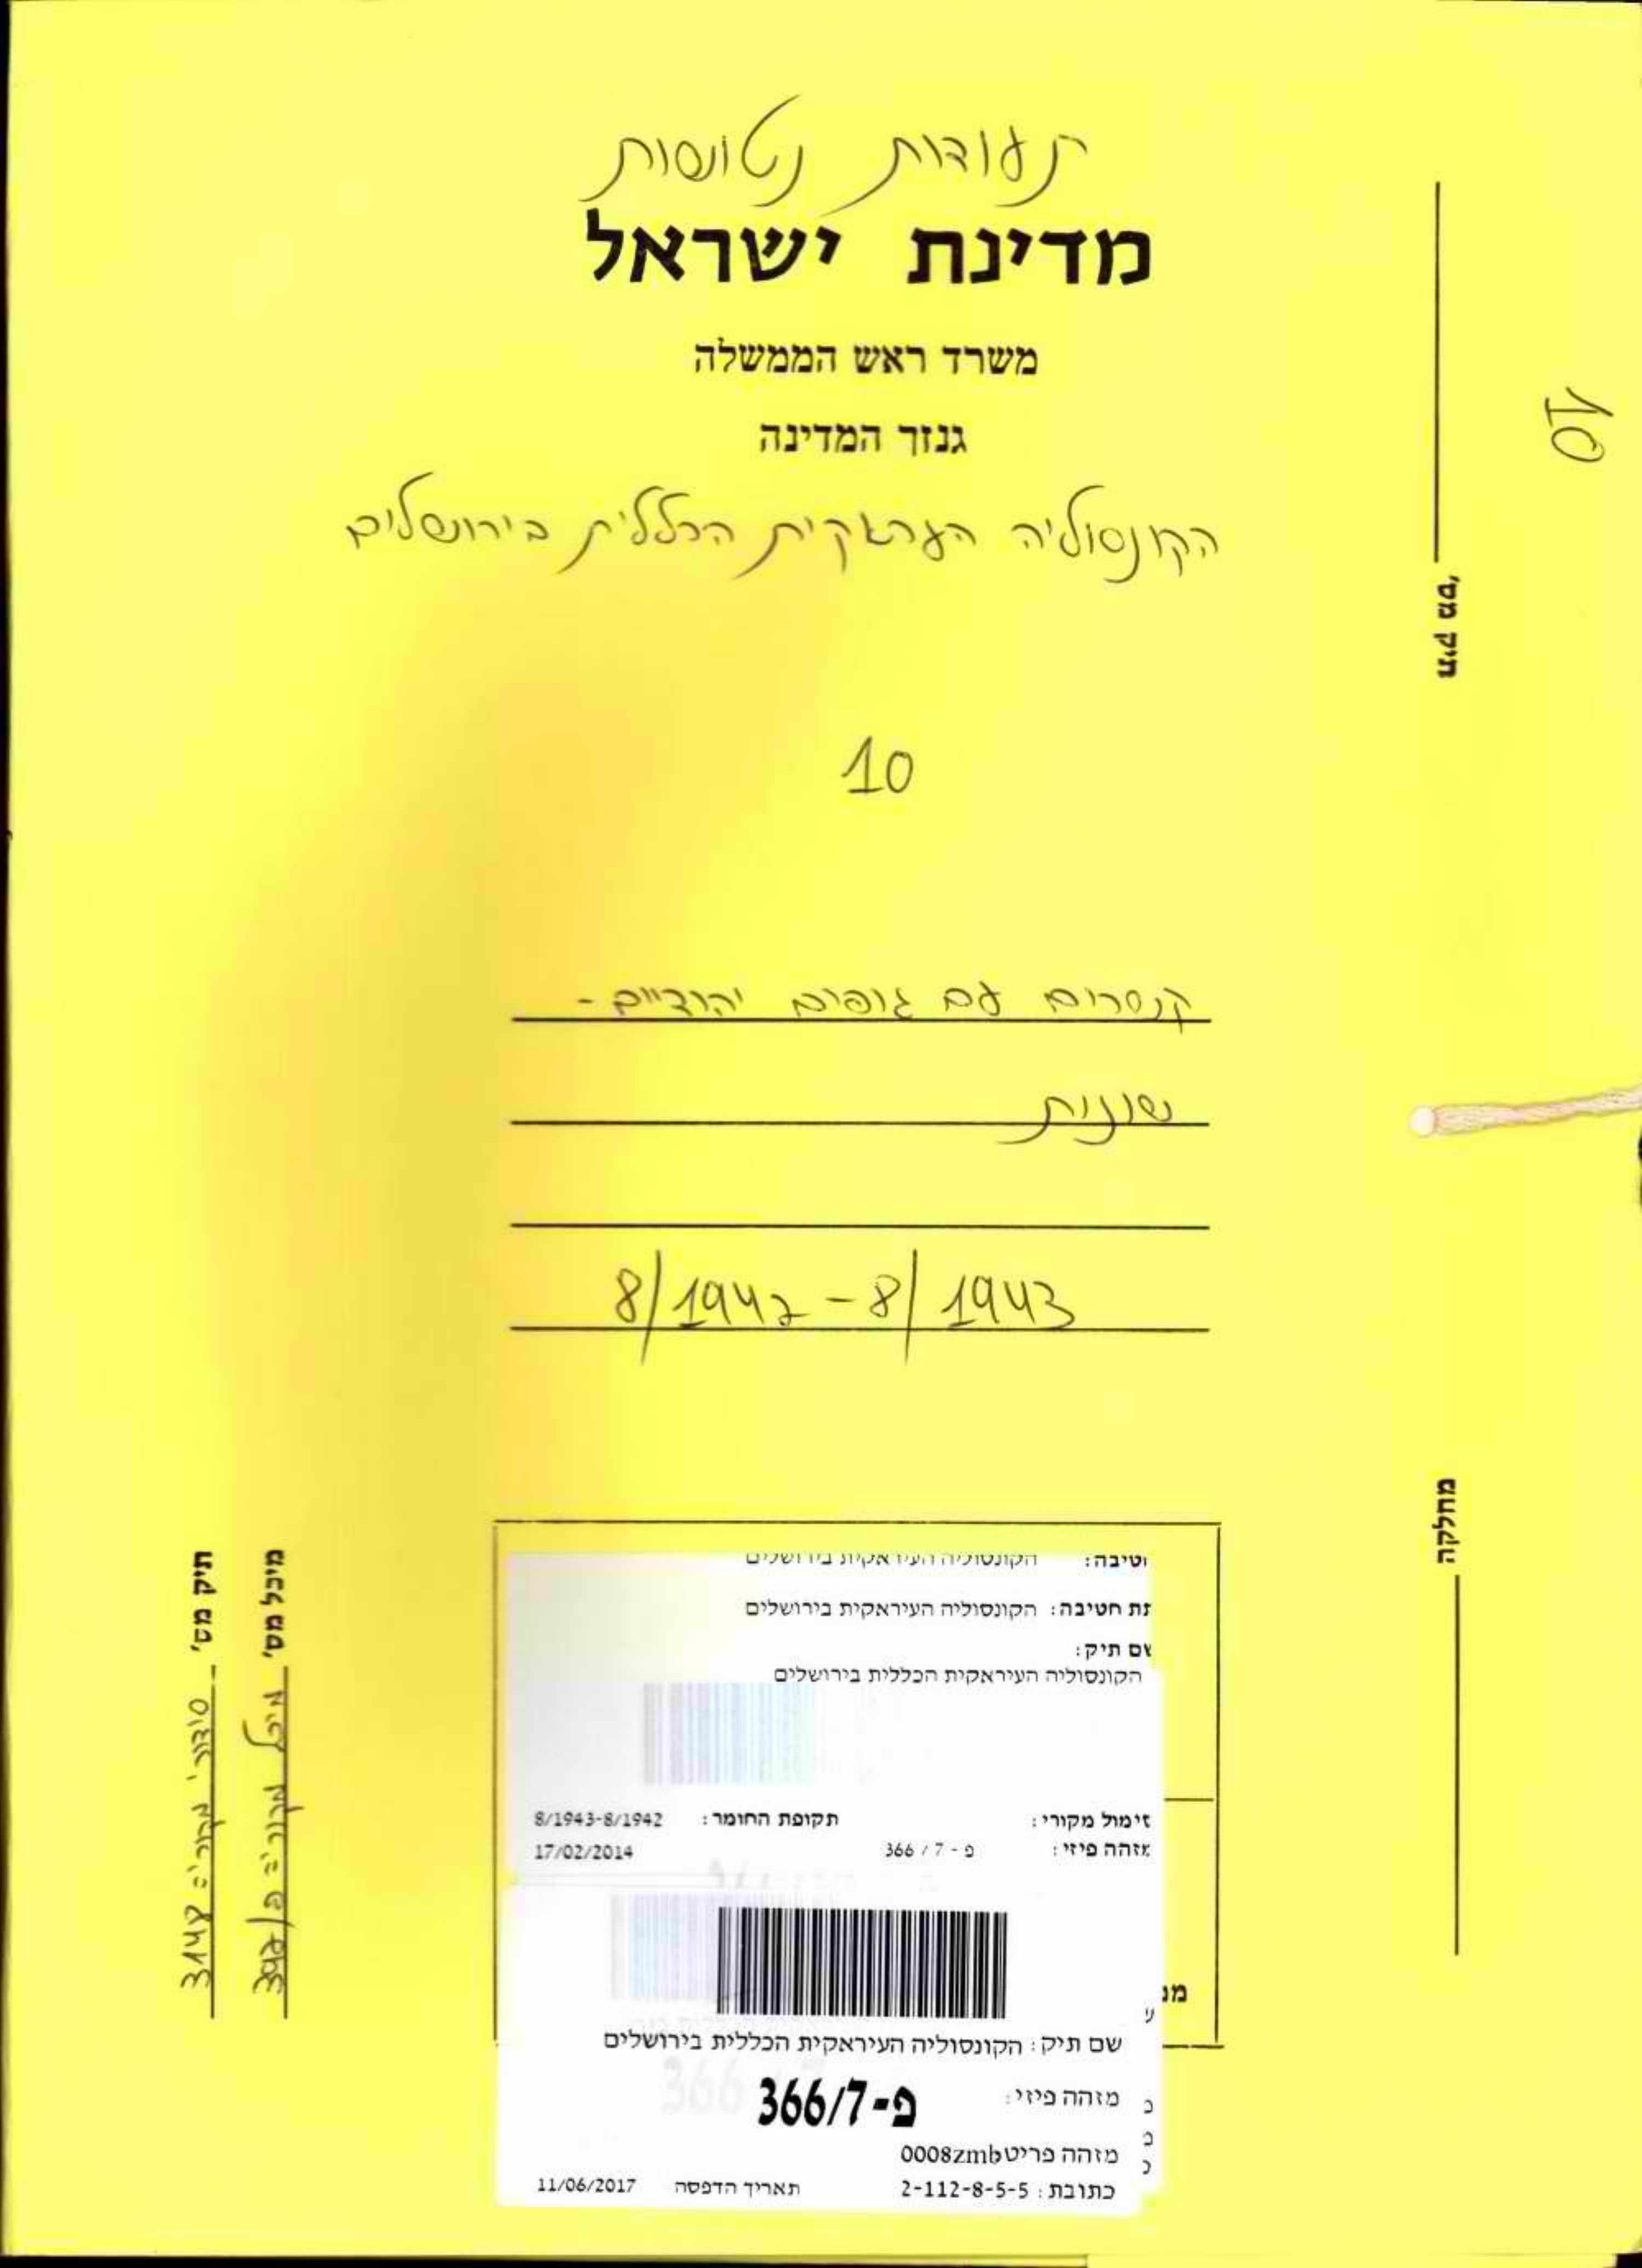 תעודות נטושות
מדינת ישראל
משרד ראש הממשלה
גנזך המדינה
הקונסוליה העראקית הכללית בירושלים
10
קשרים עם גופים יהודיים -
שונות
8/1942 - 8/1943
תיק מס'
10
מחלקה
תיק מס'
מיכל מס'
3148
392/פ
הקונסוליה העיראקית בירושלים
תת חטיבה: הקונסוליה העיראקית בירושלים
שם תיק:
הקונסוליה העיראקית הכללית בירושלים
סימול מקורי: תקופת החומר: 8/1943-8/1942
מזהה פיזי: פ - 7 / 366 17/02/2014
שם תיק: הקונסוליה העיראקית הכללית בירושלים
מזהה פיזי: פ-366/7
מזהה פריט 0008zmb
כתובת: 2-112-8-5-5 תאריך הדפסה 11/06/2017